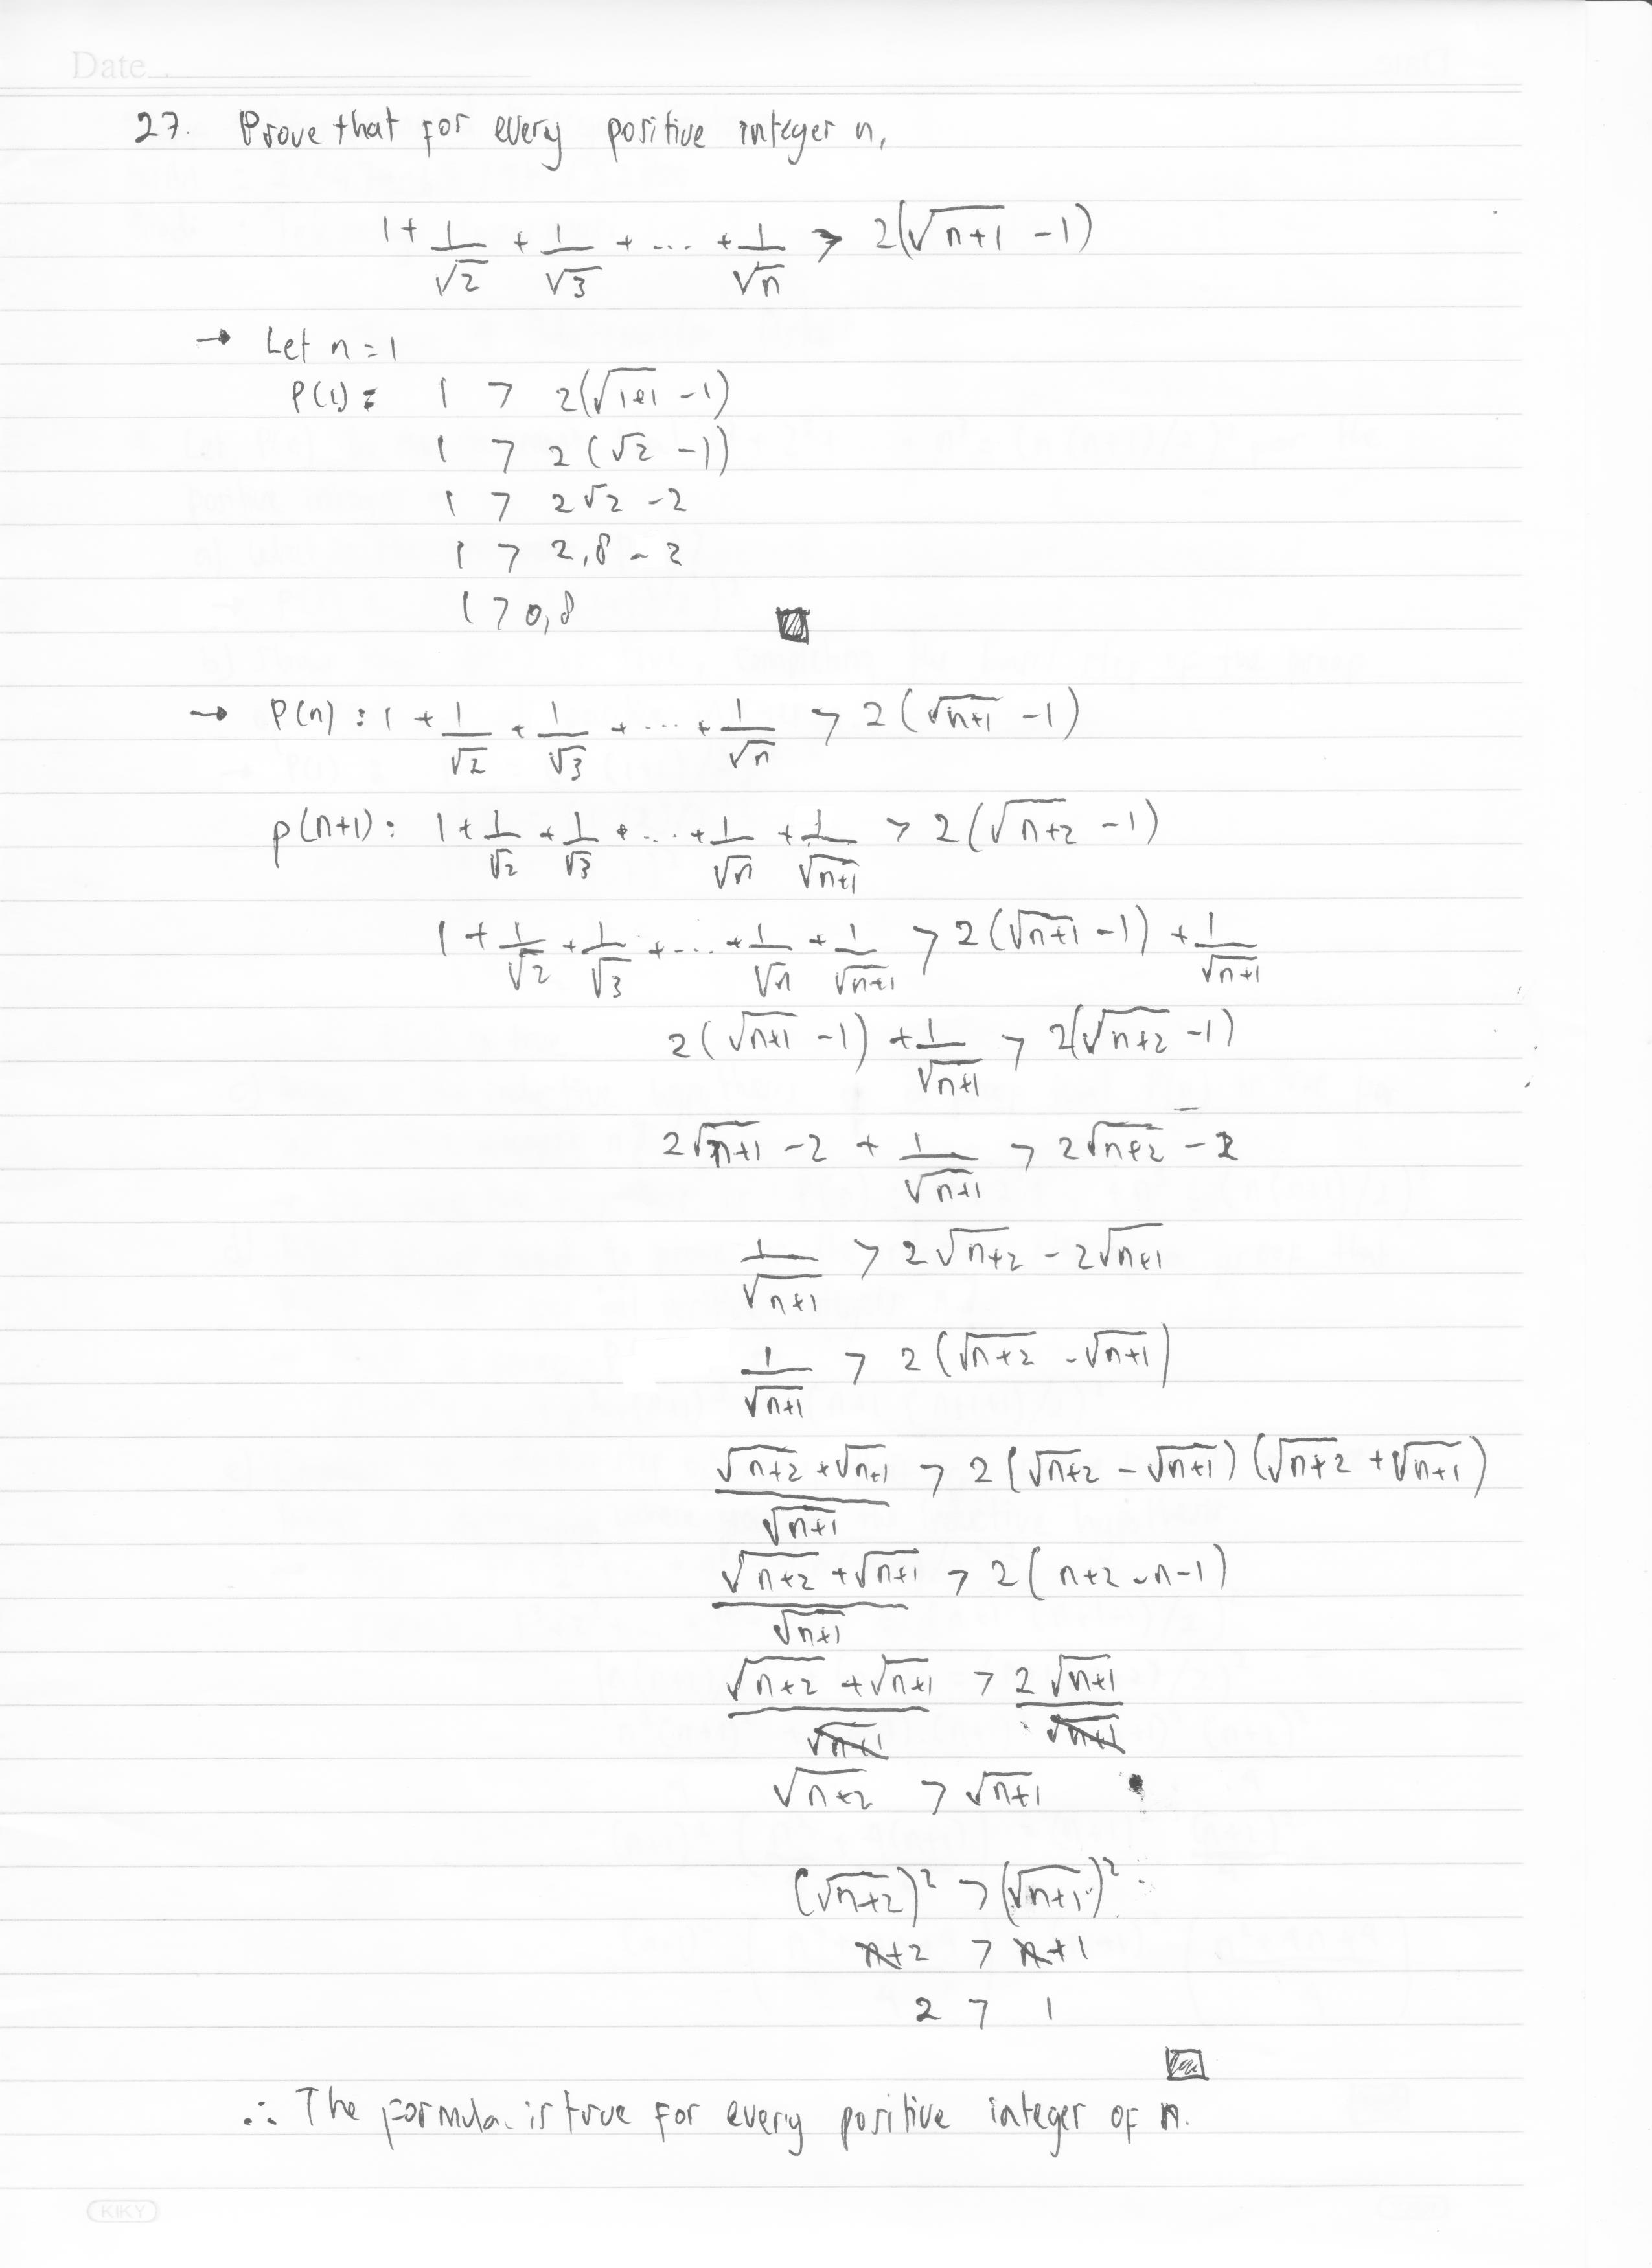 Date
27. Prove that for every positive integer n,
1 + 1/√2 + 1/√3 + ... + 1/√n > 2(√(n+1) - 1)
→ Let n = 1
P(1) : 1 > 2(√(1+1) - 1)
1 > 2(√2 - 1))
1 > 2√2 - 2
1 > 2,8 - 2
1 > 0,8
→ P(n) : 1 + 1/√2 + 1/√3 + ... + 1/√n > 2(√(n+1) - 1)
P(n+1) : 1 + 1/√2 + 1/√3 + ... + 1/√n + 1/√(n+1) > 2(√(n+2) - 1)
1 + 1/√2 + 1/√3 + ... + 1/√n + 1/√(n+1) > 2(√(n+1) - 1) + 1/√(n+1)
2(√(n+1) - 1) + 1/√(n+1) > 2(√(n+2) - 1)
2√(n+1) - 2 + 1/√(n+1) > 2√(n+2) - 2
1/√(n+1) > 2√(n+2) - 2√(n+1)
1/√(n+1) > 2(√(n+2) - √(n+1))
(√(n+2) + √(n+1))/√(n+1) > 2(√(n+2) - √(n+1))(√(n+2) + √(n+1))
(√(n+2) + √(n+1))/√(n+1) > 2(n+2-n-1)
(√(n+2) + √(n+1))/√(n+1) > 2√(n+1)/√(n+1)
√(n+2) > √(n+1)
(√(n+2))² > (√(n+1))²
n+2 > n+1
2 > 1
∴ The formula is true for every positive integer of n.
KIKY